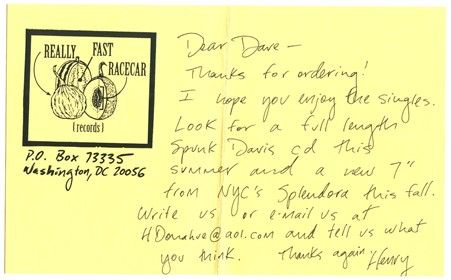 REALLY
FAST
RACECAR
(records)
P.O. Box 73335
Washington, DC 20056
Dear Dave –
Thanks for ordering!
I hope you enjoy the singles.
Look for a full length
Spunk Davis cd this
summer and a new 7"
from NYC's Splendora this fall.
Write us or e-mail us at
HDonahue@aol.com and tell us what
you think. Thanks again. Henry